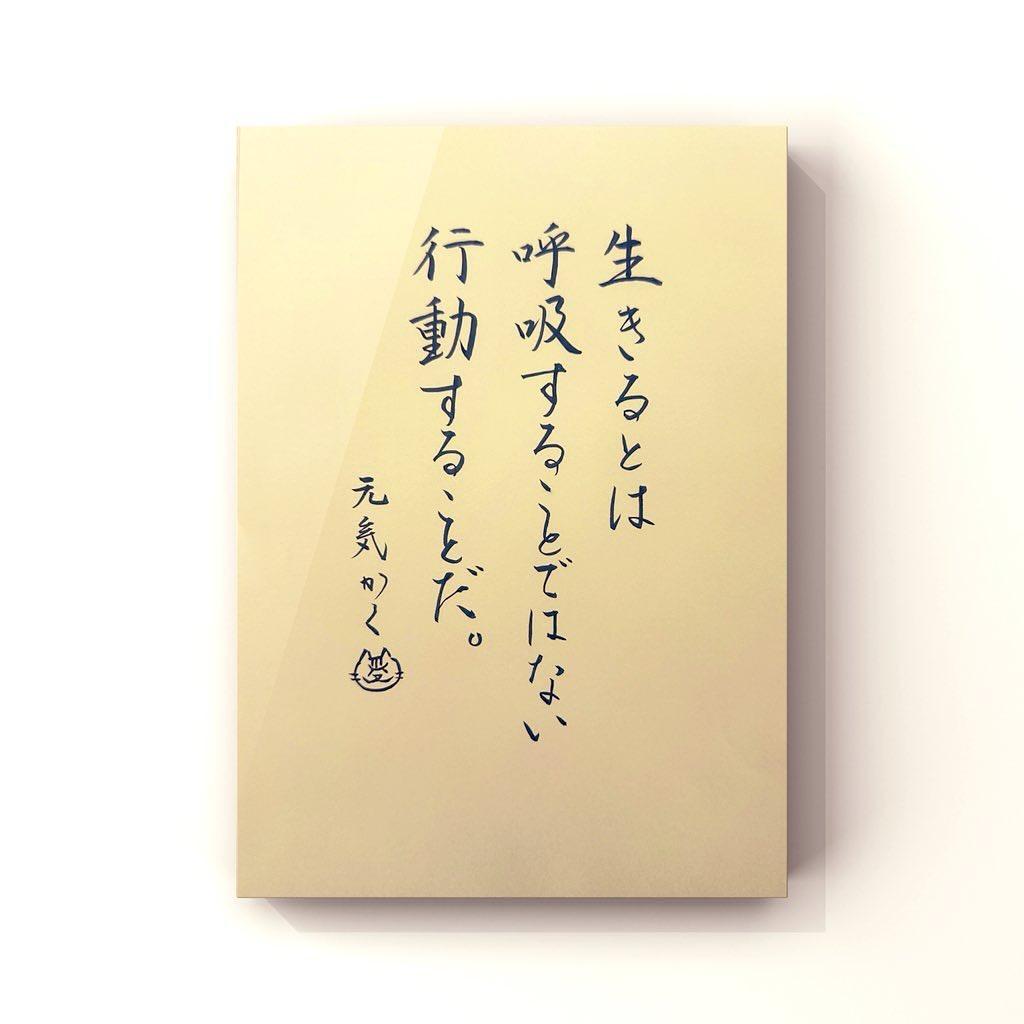 生きるとは
呼吸することではない
行動することだ。
元気かく